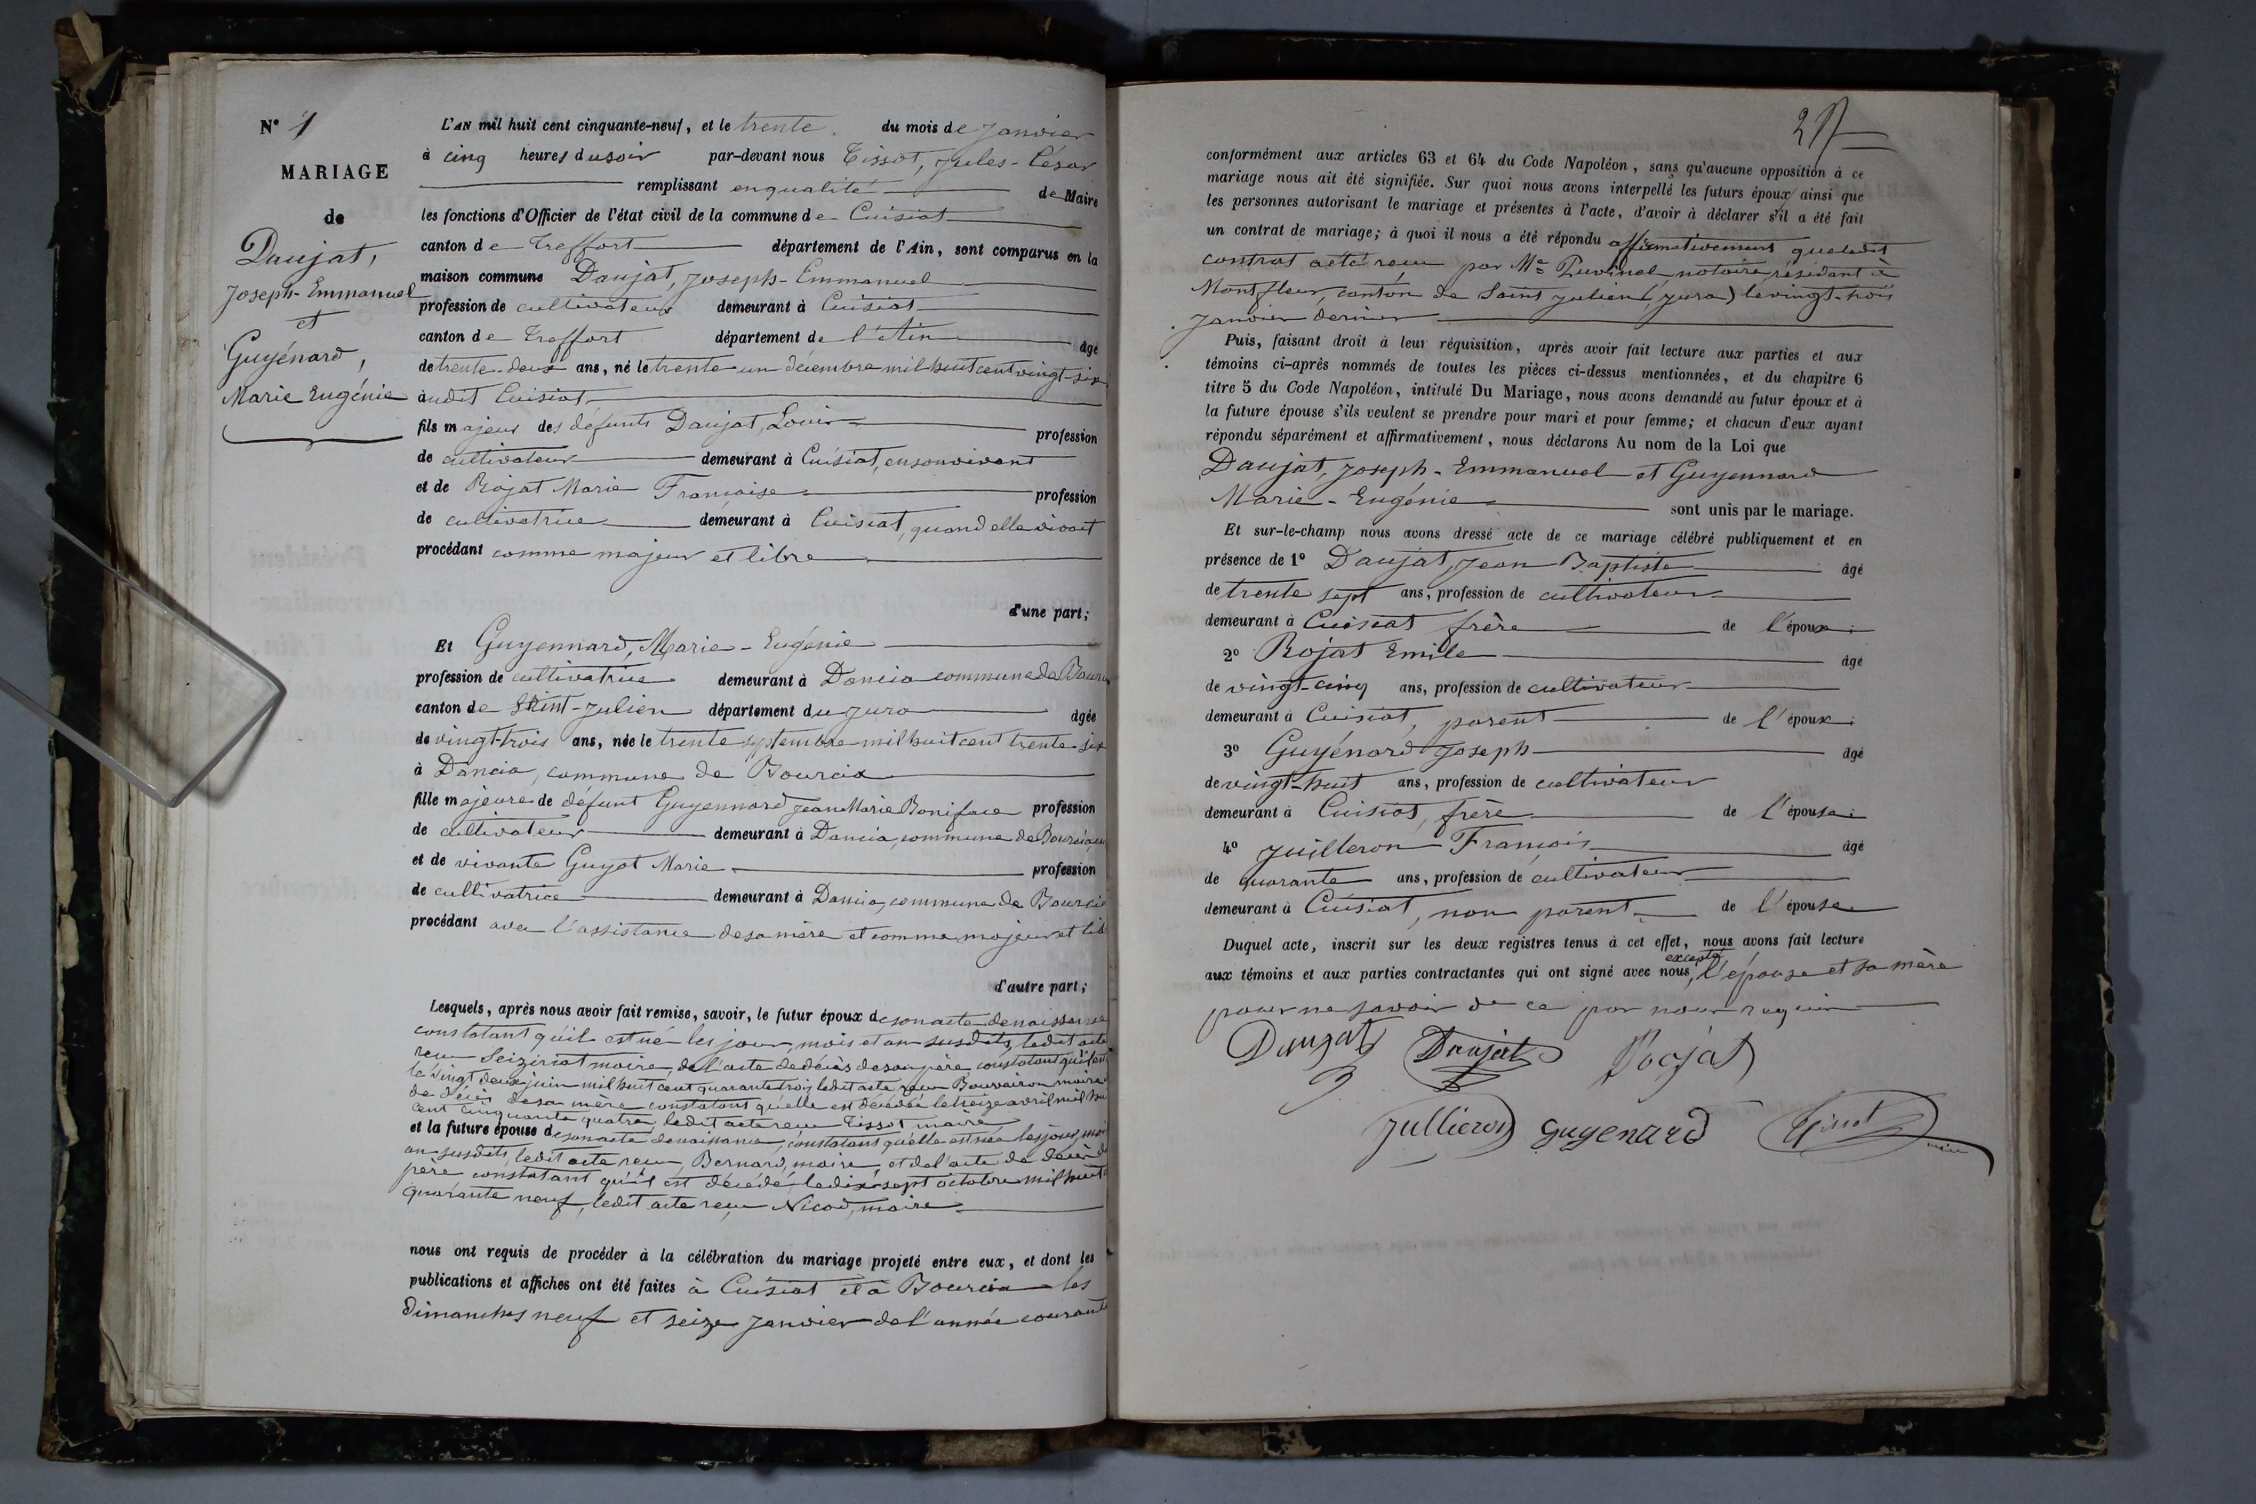 N° 1
MARIAGE
de
Daujat,
Joseph-Emmanuel
et
Guyénard,
Marie Eugénie
L'AN mil huit cent cinquante-neuf, et le trente du mois de Janvier
à cinq heures du soir par-devant nous Tissot, Jules-César
remplissant en qualité de Maire
les fonctions d'Officier de l'état civil de la commune de Cuisiat
canton de Treffort département de l'Ain, sont comparus en la
maison commune Daujat, Joseph-Emmanuel
profession de cultivateur demeurant à Cuisiat
canton de Treffort département de l'Ain âgé
de trente-deux ans, né le trente un décembre mil huit cent vingt-six
à udit Cuisiat
fils majeur des défunts Daujat, Louis profession
de cultivateur demeurant à Cuisiat, en son vivant
et de Rojat Marie Francoise profession
de cultivatrice demeurant à Cuisiat, quand elle vivait
procédant comme majeur et libre
d'une part;
Et Guyennard, Marie-Eugénie
profession de cultivatrice demeurant à Dancia commune de Bourc
canton de Saint-Julien département du Jura âgée
de vingt-trois ans, née le trente septembre mil huit cent trente-six
à Dancia, commune de Bourcia
fille majeure de défunt Guyennard Jean Marie Boniface profession
de cultivateur demeurant à Dancia, commune de Bourcia
et de vivante Guyot Marie profession
de cultivatrice demeurant à Dancia, commune de Bourcia
procédant avec l'assistance de sa mère et comme majeur et lib
d'autre part;
Lesquels, après nous avoir fait remise, savoir, le futur époux de son acte de naissance
constatant qu'il est né les jour, mois et an susdits, ledit acte
recu Seiziriat maire, de l'acte de décès de son père constatant qu'il est
le vingt deux juin mil huit cent quarante trois, ledit acte recu Bouvairon maire
de décès de sa mère constatant qu'elle est décédée le treize avril mil hu
cent cinquante quatre, ledit acte recu Tissot maire
et la future épouse de son acte de naissance, constatant qu'elle est née les jour, moi
an susdits, ledit acte recu Bernard, maire, et de l'acte de décès de
père constatant qu'il est décédé le dix-sept octobre mil huit c
quarante neuf, ledit acte recu Nicod, maire
nous ont requis de procéder à la célébration du mariage projeté entre eux, et dont les
publications et affiches ont été faites à Cuisiat et à Bourcia les
dimanches neuf et seize Janvier de l'année courante
conformément aux articles 63 et 64 du Code Napoléon, sans qu'aucune opposition à ce
mariage nous ait été signifiée. Sur quoi nous avons interpellé les futurs époux ainsi que
les personnes autorisant le mariage et présentes à l'acte, d'avoir à déclarer s'il a été fait
un contrat de mariage; à quoi il nous a été répondu affirmativement que ledit
contrat a été recu par Me Puvinel notaire résidant à
Montfleur, canton de Saint Julien (Jura) le vingt-trois
Janvier dernier
Puis, faisant droit à leur réquisition, après avoir fait lecture aux parties et aux
témoins ci-après nommés de toutes les pièces ci-dessus mentionnées, et du chapitre 6
titre 5 du Code Napoléon, intitulé Du Mariage, nous avons demandé au futur époux et à
la future épouse s'ils veulent se prendre pour mari et pour femme; et chacun d'eux ayant
répondu séparément et affirmativement, nous déclarons Au nom de la Loi que
Daujat, Joseph-Emmanuel et Guyennard
Marie-Eugénie sont unis par le mariage.
Et sur-le-champ nous avons dressé acte de ce mariage célébré publiquement et en
présence de 1° Daujat, Jean Baptiste âgé
de trente sept ans, profession de cultivateur
demeurant à Cuisiat frère de l'époux;
2° Rojat Emile âgé
de vingt-cinq ans, profession de cultivateur
demeurant à Cuisiat, parent de l'époux;
3° Guyénard Joseph âgé
de vingt-huit ans, profession de cultivateur
demeurant à Cuisiat, frère de l'épouse;
4° Juilleron François âgé
de quarante ans, profession de cultivateur
demeurant à Cuisiat, non parent de l'épouse
Duquel acte, inscrit sur les deux registres tenus à cet effet, nous avons fait lecture
aux témoins et aux parties contractantes qui ont signé avec nous, excepté l'épouse et sa mère
pour ne savoir de ce par nous requis
Daujat Daujat Rojat
Jullieron Guyenard Tissot